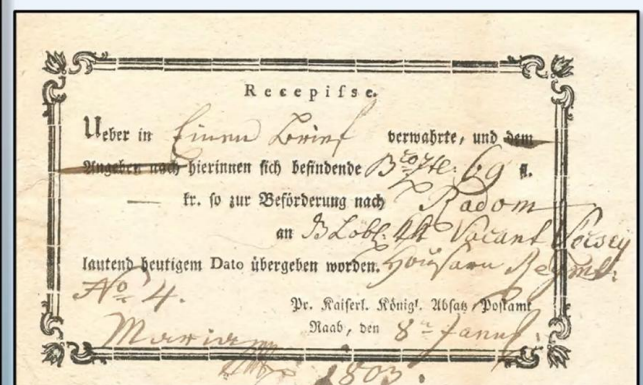 Recepisse.
Ueber in Einen Brief verwahrte, und dem
Angeben nach hierinnen sich befindende 69 fl.
— kr. so zur Beförderung nach Radom
an Löbl. Vacant Vecsey
lautend heutigem Dato übergeben worden. Housarn Regmt.
No. 4.
Pr. Kaiserl. Königl. Absatz Postamt
Raab, den 8n Janu
1803.